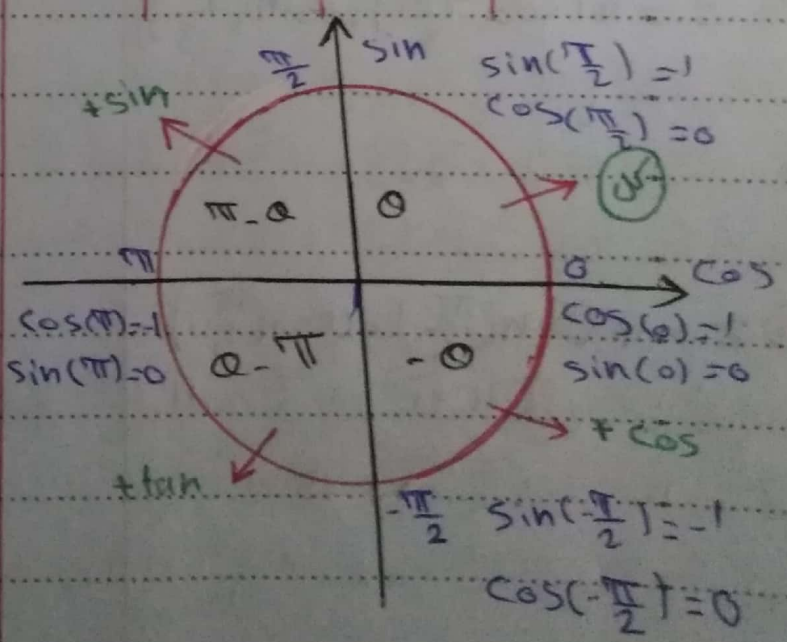 sin
π/2
sin(π/2)=1
cos(π/2)=0
+sin
كل
π-θ
θ
π
0
cos
cos(π)=-1
sin(π)=0
cos(0)=1
sin(0)=0
θ-π
-θ
+cos
+tan
-π/2
sin(-π/2)=-1
cos(-π/2)=0